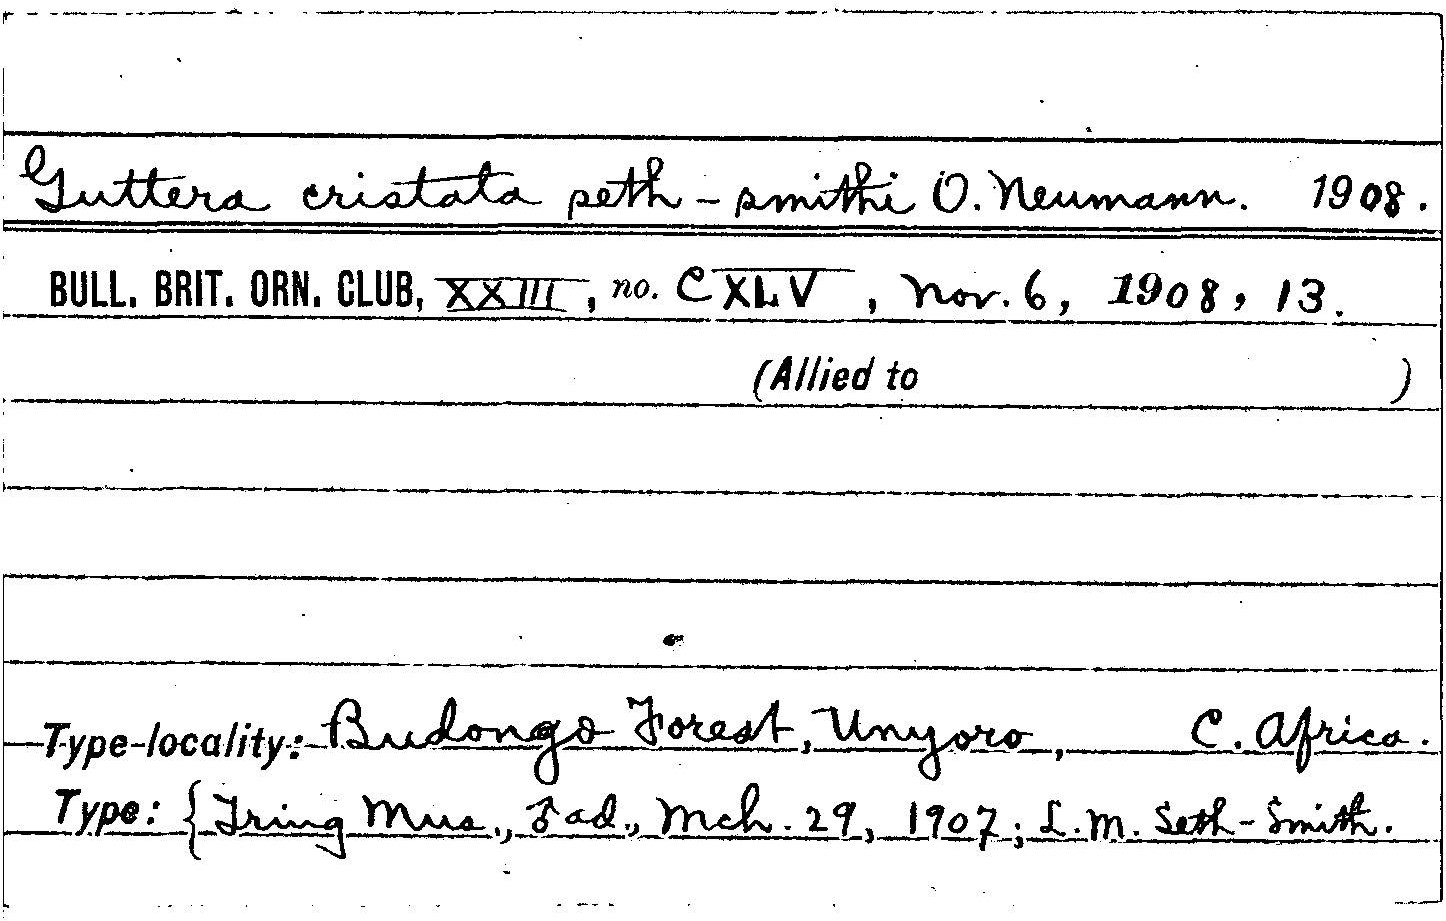 Guttera cristata seth-smithi O. Neumann. 1908.
BULL. BRIT. ORN. CLUB, XXIII, no. CXLV, Nov. 6, 1908, 13.
(Allied to )
Type-locality: Budongo Forest, Unyoro, C. Africa.
Type: {Tring Mus., ♂ ad., Mch. 29, 1907; L. M. Seth-Smith.